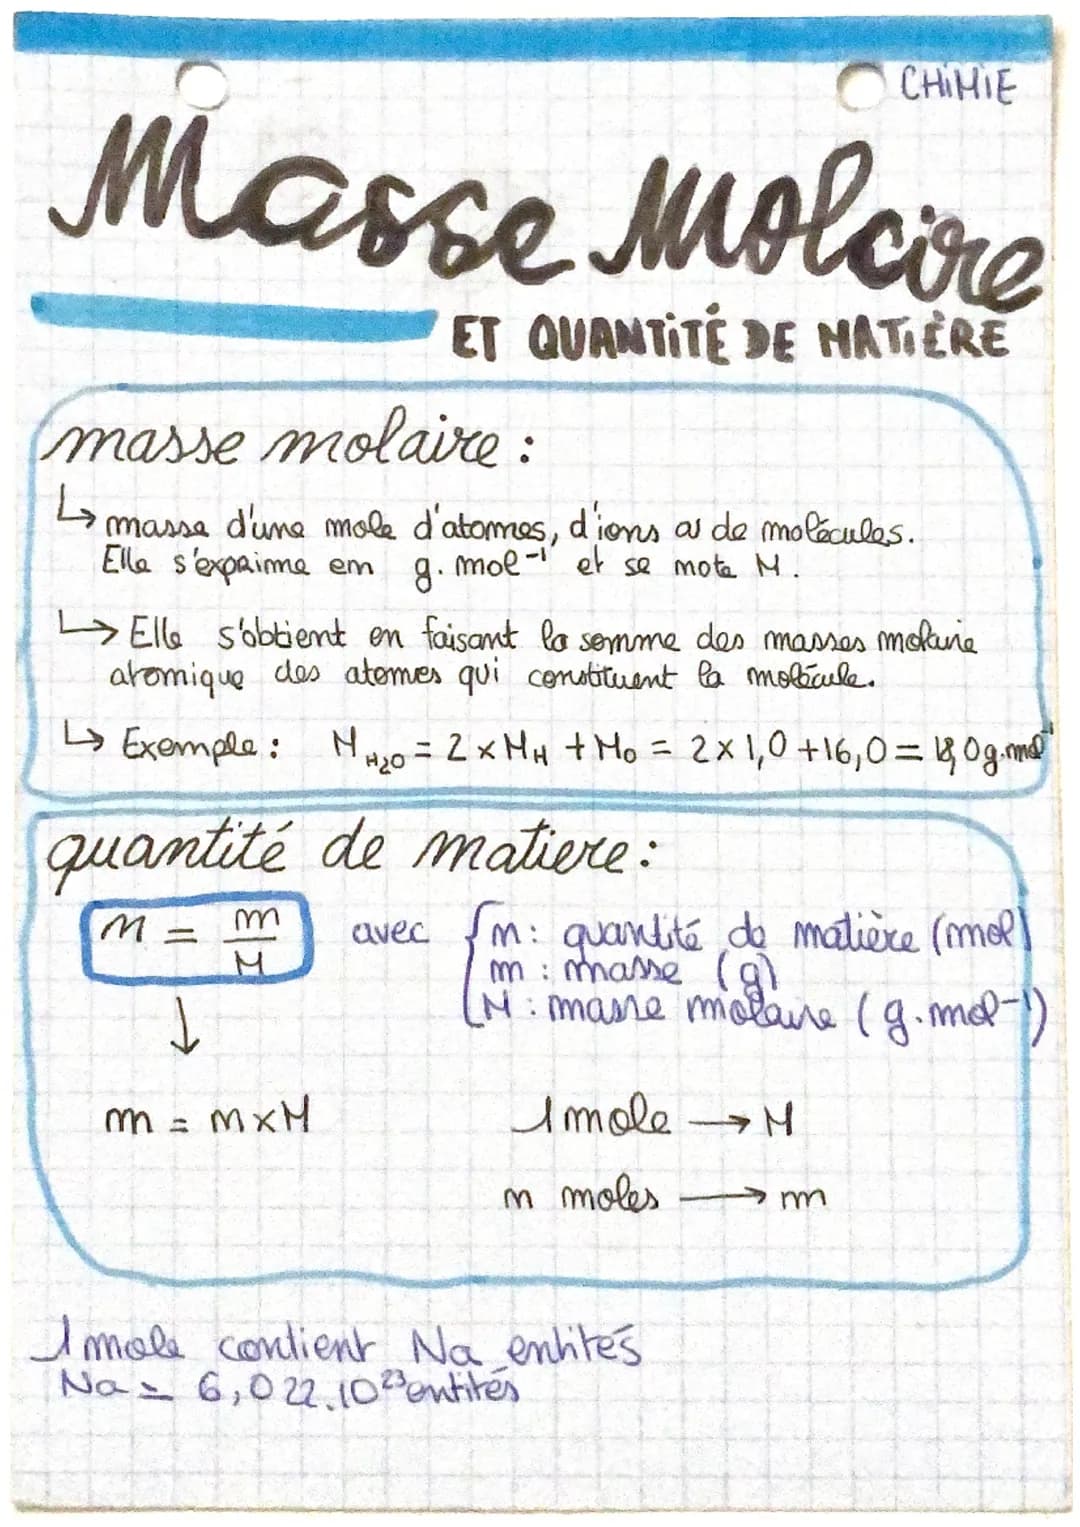 CHIMIE
Masse Molaire
ET QUANTITÉ DE MATIÈRE
masse molaire :
↳ masse d'une mole d'atomes, d'ions ou de molécules.
Elle s'exprime en g.mol⁻¹ et se note M.
↳ Elle s'obtient en faisant la somme des masses molaire
atomique des atomes qui constituent la molécule.
↳ Exemple : M H₂O = 2 × M_H + M_O = 2 × 1,0 + 16,0 = 18,0 g.mol⁻¹
quantité de matiere :
n = m/M avec { n : quantité de matière (mol)
m : masse (g)
M : masse molaire (g.mol⁻¹)
↓
m = n × M
1 mole → M
n moles → m
1 mole contient Na entités
Na = 6,022.10²³ entités